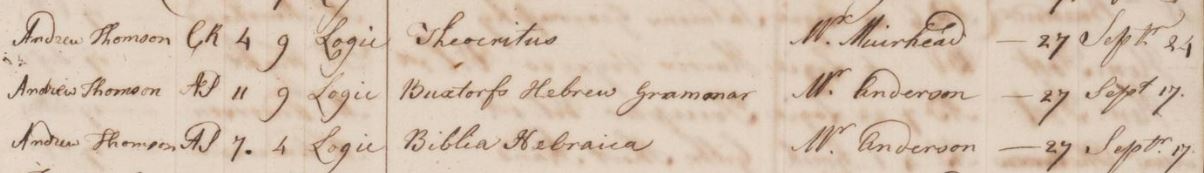 Andrew Thomson CR 4 9 Logic Theocritus Mr. Muirhead — 27 Septr 24
Andrew Thomson AS 11 9 Logic Buxtorfs Hebrew Grammar Mr. Anderson — 27 Sept 17.
Andrew Thomson AS 7. 4 Logic Biblia Hebraica Mr. Anderson — 27 Septr. 17.